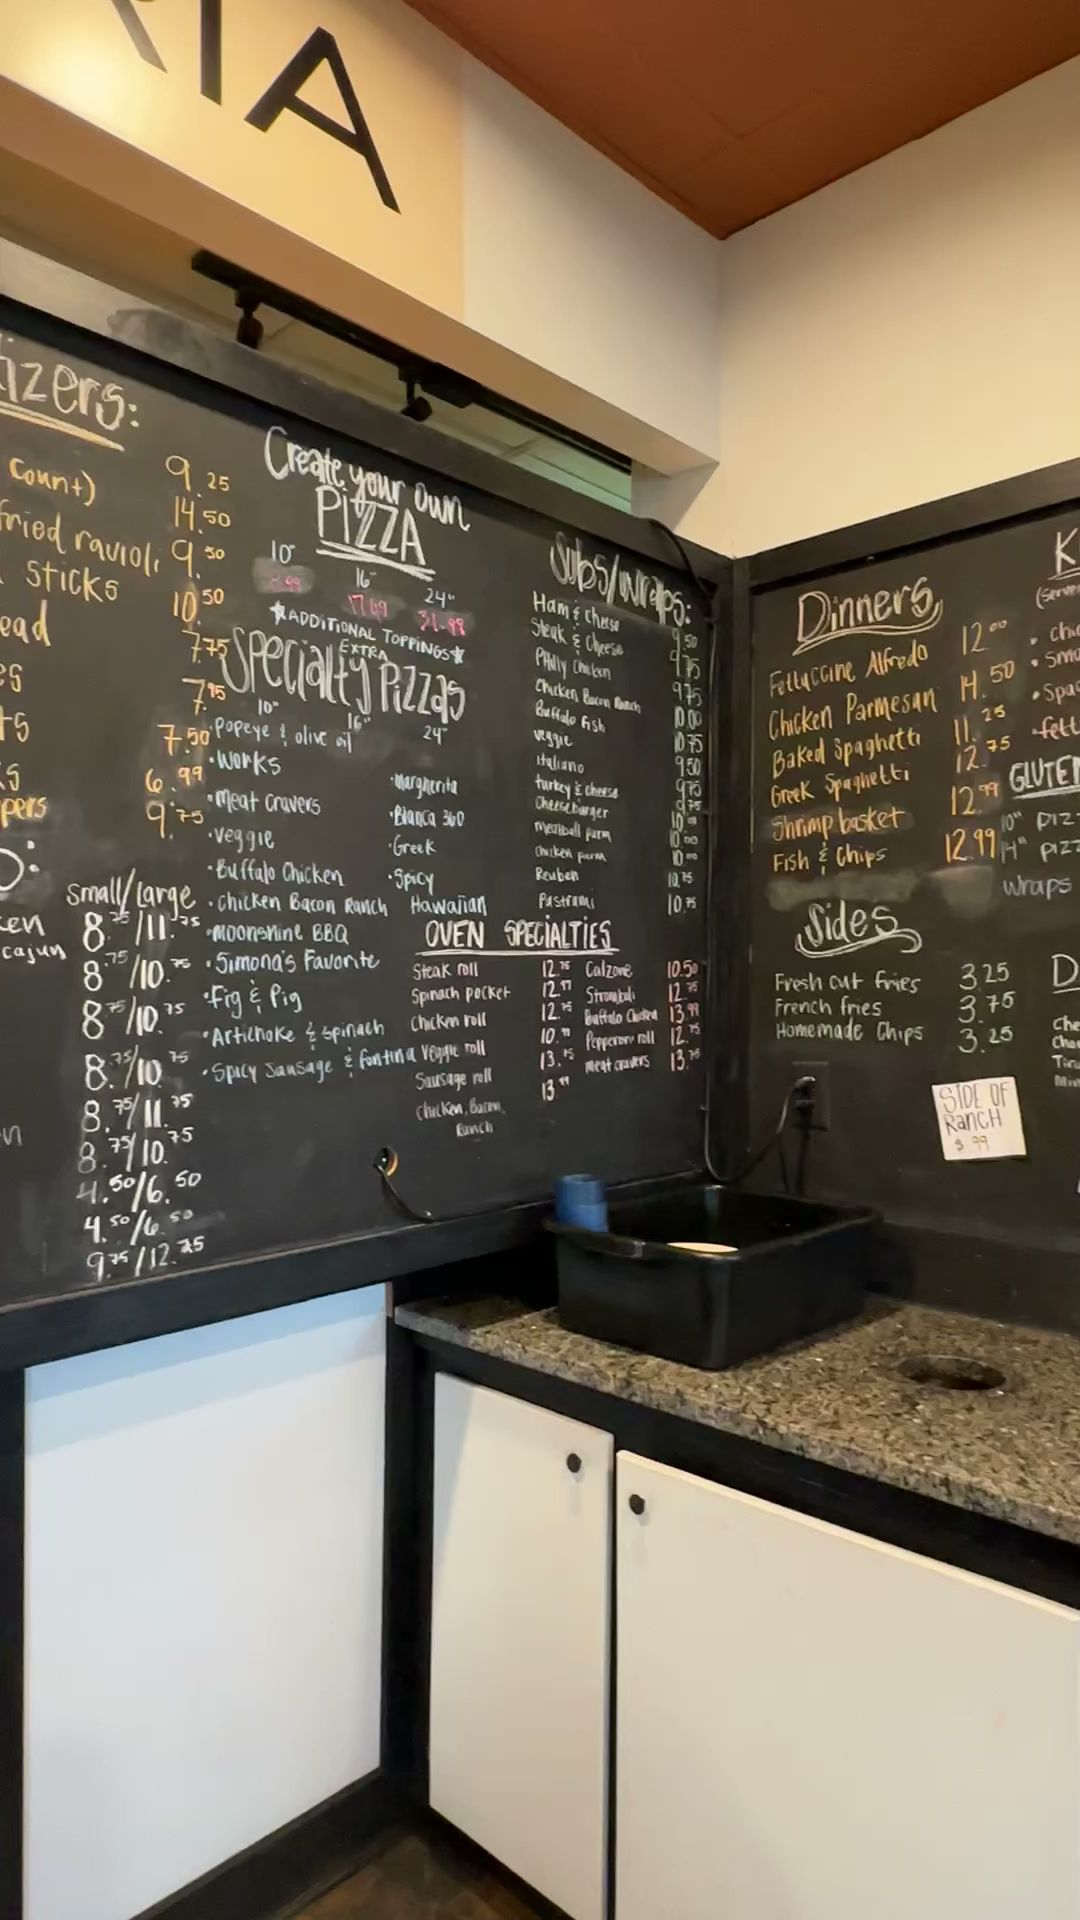 RIA
tizers:
count) 9.25
14.50
fried ravioli 9.50
sticks 10.50
ead 7.75
es 7.95
ts 7.50
ks 6.99
pers 9.75
O:
Small/Large
ken 8.75/11.75
cajun
8.75/10.75
8.75/10.75
8.75/10.75
8.75/11.75
8.75/10.75
4.50/6.50
4.50/6.50
9.75/12.25
Create your own
PIZZA
10" 16" 24"
8.99 17.49 31.99
★ADDITIONAL TOPPINGS★
EXTRA
Specialty Pizzas
10" 16" 24"
•popeye & olive oil
•Works
•Meat Cravers
•Veggie
•Buffalo Chicken
•Chicken Bacon Ranch
•Moonshine BBQ
•Simona's Favorite
•Fig & Pig
•Artichoke & Spinach
•Spicy Sausage & fontina
•Margherita
•Bianca 360
•Greek
•Spicy
Hawaiian
OVEN SPECIALTIES
Steak roll 12.75
Spinach pocket 12.99
Chicken roll 12.75
Veggie roll 10.99
Sausage roll 13.75
Chicken, Bacon, Ranch 13.99
Calzone 10.50
Stromboli 12.75
Buffalo Chicken 13.99
Pepperoni roll 12.75
meat cravers 13.75
Subs/wraps:
Ham & Cheese 9.50
Steak & Cheese 9.75
Philly Chicken 9.75
Chicken Bacon Ranch 10.00
Buffalo fish 10.75
veggie 9.50
italiano 9.75
turkey & cheese 9.75
Cheeseburger 10.00
meatball parm 10.00
chicken parm 10.00
Reuben 10.75
Pastrami 10.75
Dinners
Fettuccine Alfredo 12.00
Chicken Parmesan 14.50
Baked Spaghetti 11.25
Greek Spaghetti 12.75
Shrimp basket 12.99
Fish & Chips 12.99
Sides
Fresh cut fries 3.25
French fries 3.75
Homemade Chips 3.25
SIDE OF
RANCH
$.99
K
(serve
•chi
•Smo
•Spag
•fett
GLUTEN
10" pizz
14" pizz
wraps
D
Che